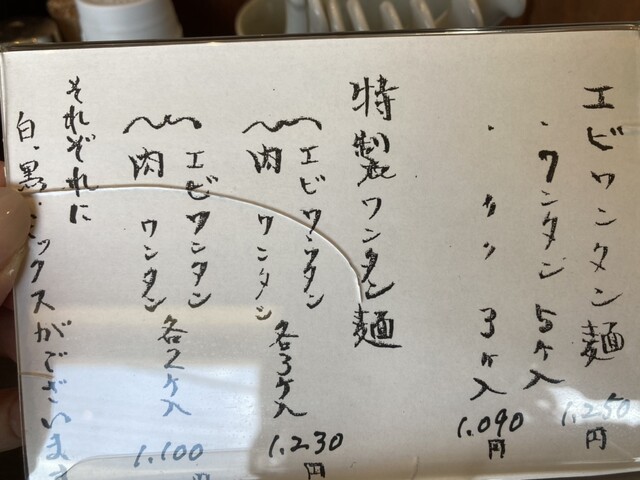 エビワンタン麺
・ワンタン 5ヶ入 1,250円
・ 〃 3ヶ入 1,090円
特製ワンタン麺
エビワンタン
肉ワンタン 各3ヶ入 1,230円
エビワンタン
肉ワンタン 各2ヶ入 1,100円
それぞれに
白、黒ミックスがございます